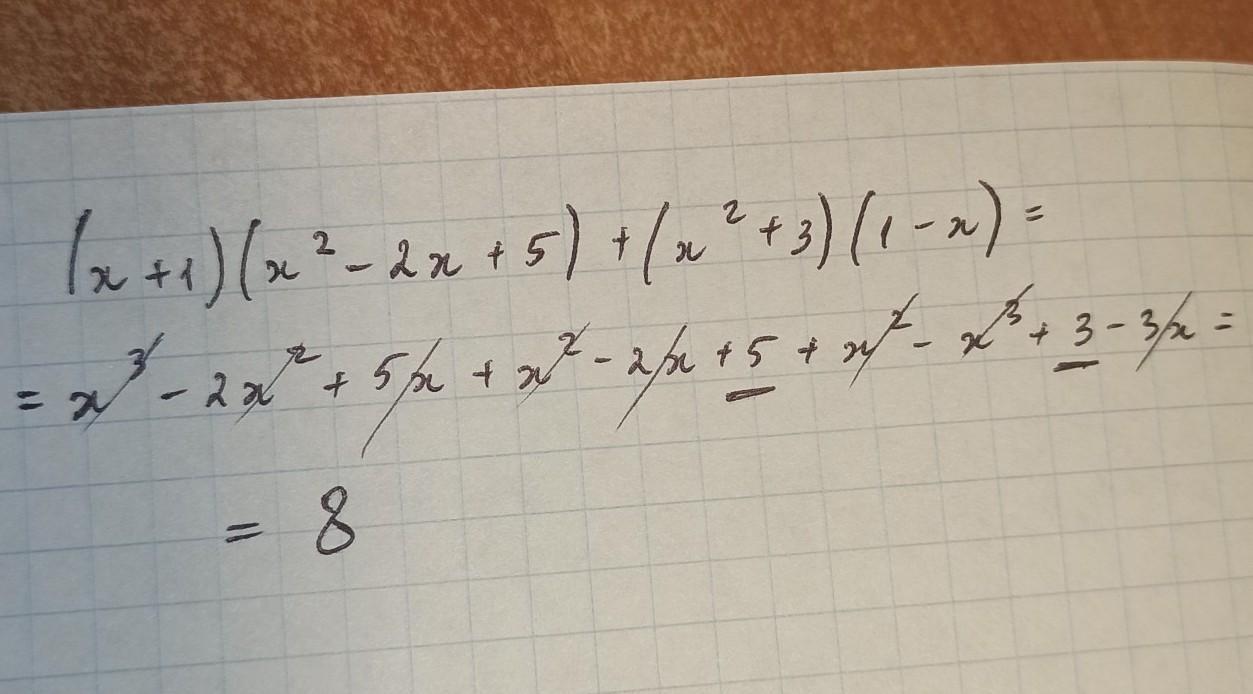 (x+1)(x²-2x+5)+(x²+3)(1-x)=
=x³-2x²+5x+x²-2x+5+x²-x³+3-3x=
=8